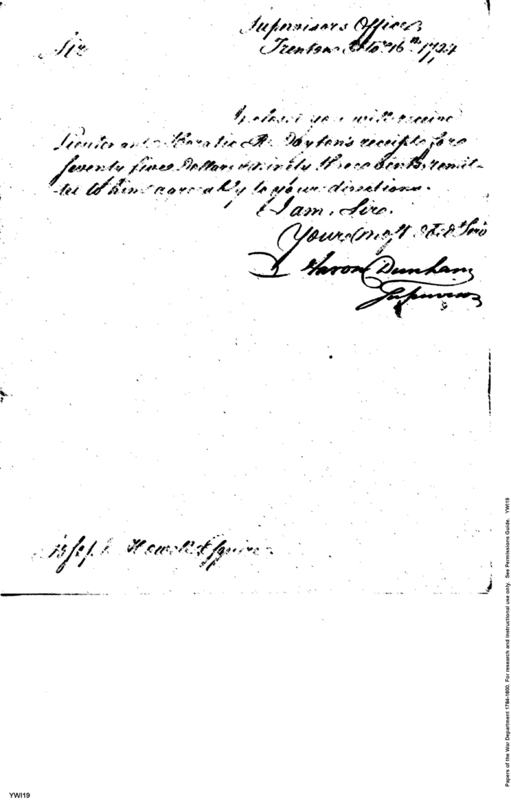 Supervisors Office
Trenton 16th 1794
Sir
Inclosed you will receive
Lieutenant Horatio R. Dayton's receipts for
Seventy five Dollars & ninety three Cents, remit-
ted to him agreeably to your directions.
I am, Sir.
Your Most Obdt Serv
Aaron Dunham
Supervisor
Joseph Howell Esquire
Papers of the War Department 1784-1800. For research and instructional use only. See Permissions Guide. YWI19
YWI19